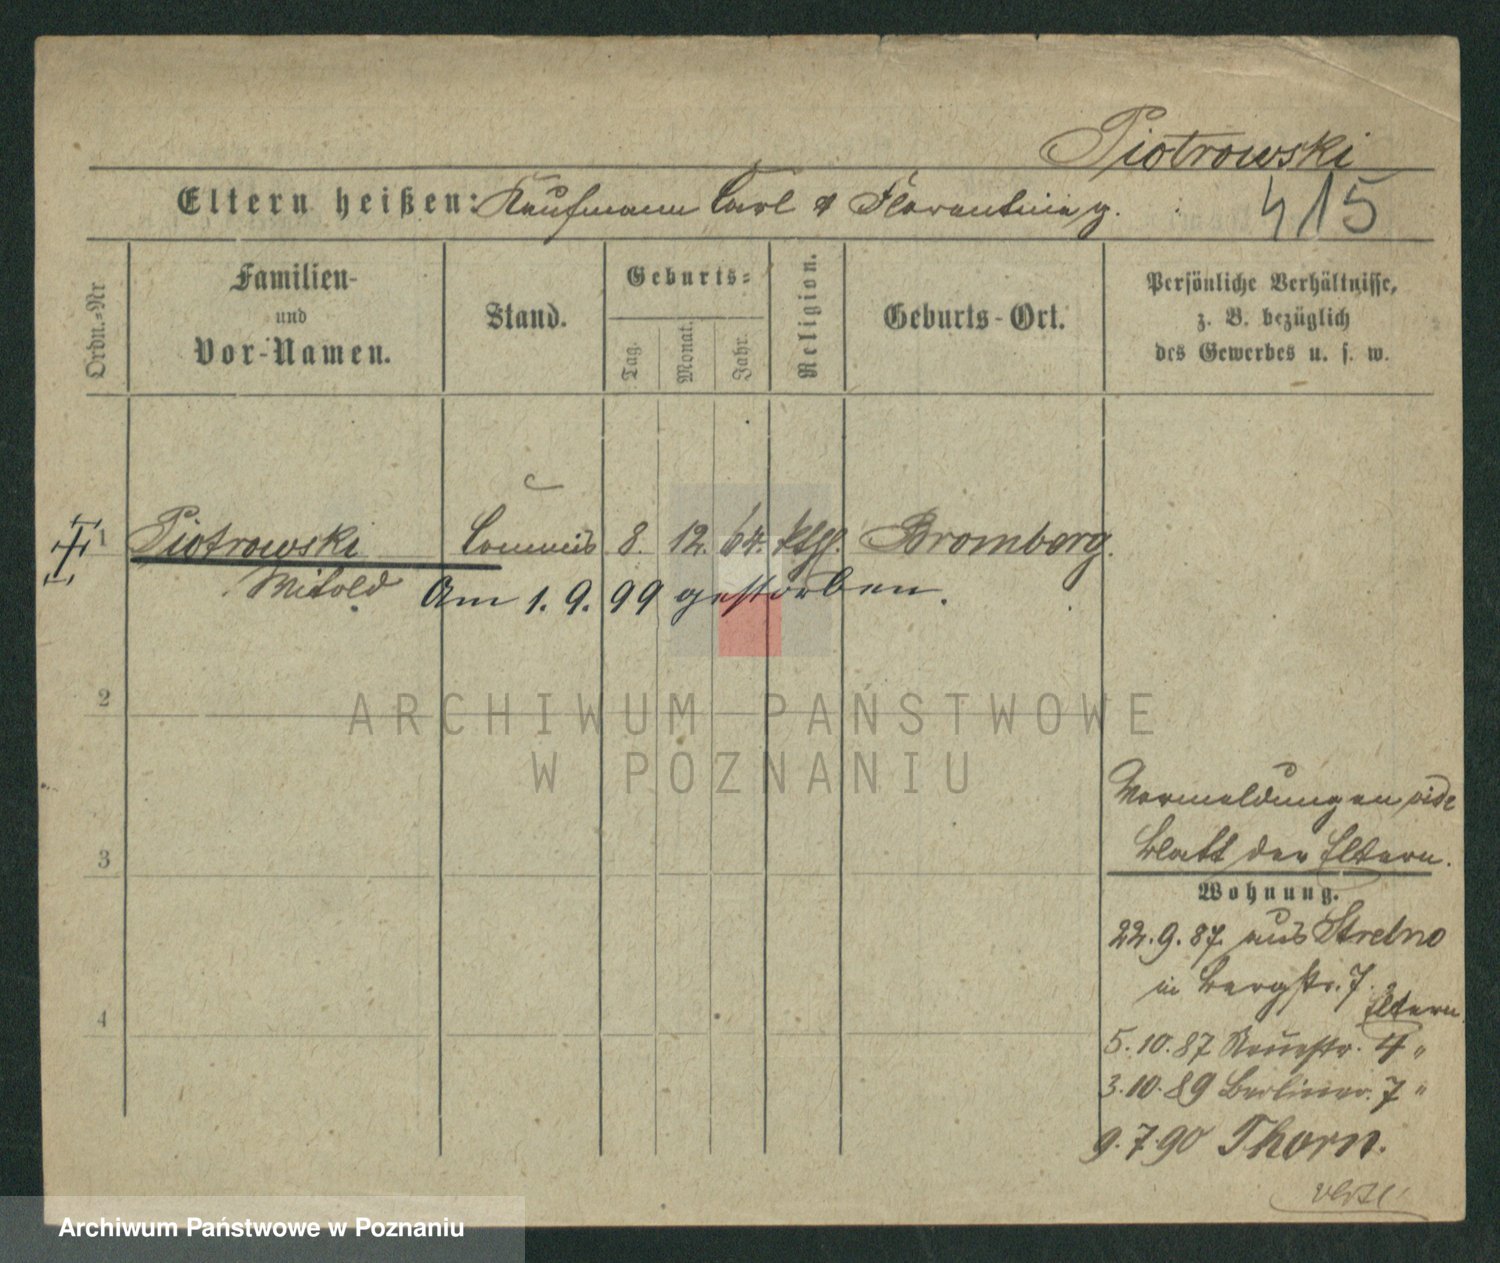 Piotrowski
Eltern heißen: Kaufmann Carl & Florentine g.
415
Ordn.-Nr
Familien-
und
Vor-Namen.
Stand.
Geburts-
Tag.
Monat.
Jahr.
Religion.
Geburts-Ort.
Persönliche Verhältnisse,
z. B. bezüglich
des Gewerbes u. s. w.
1 Piotrowski Commis 8. 12. 64. kthl. Bromberg.
Witold Am 1. 9. 99 gestorben.
2
3
4
Vormeldungen vide
Blatt der Eltern.
Wohnung.
22. 9. 87. aus Strelno
in Bergstr. 7.
Eltern
5. 10. 87 Neuestr. 4 "
3. 10. 89 Berliner. 7 "
9. 7. 90 Thorn.
ARCHIWUM PAŃSTWOWE
W POZNANIU
Archiwum Państwowe w Poznaniu